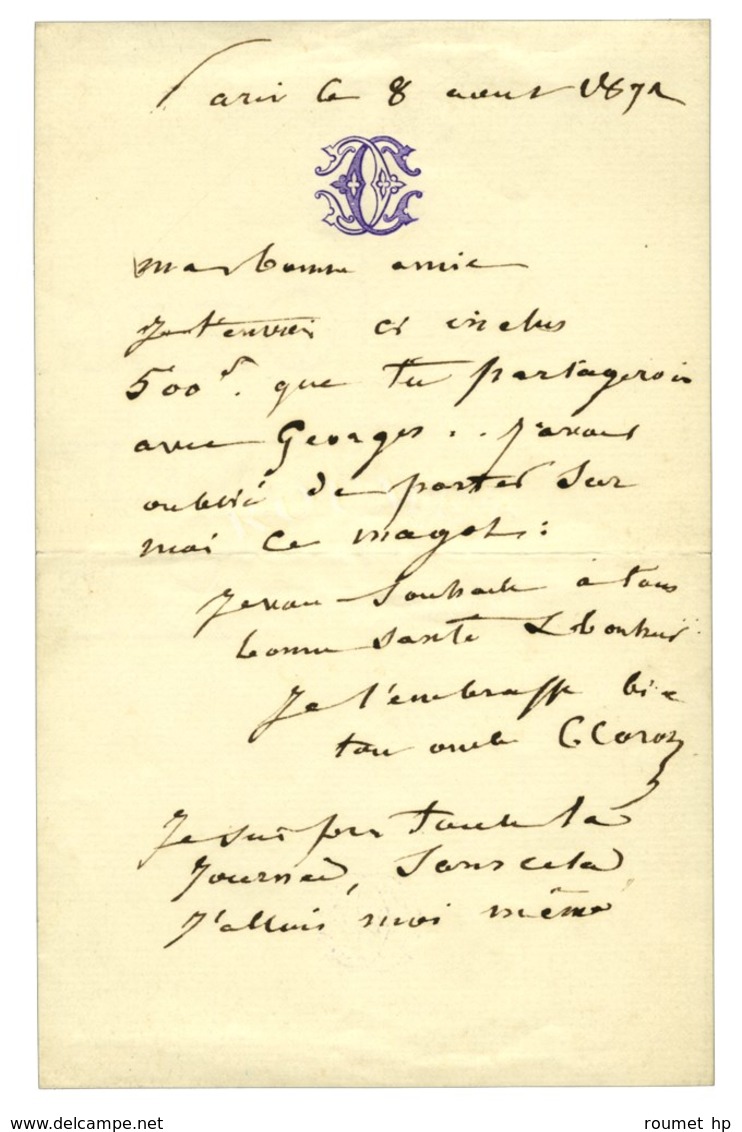 Paris le 8 aout 1872
ma bonne amie
Je t'envoi ci inclus
500f. que tu partagerois
avec Georges.. J'avais
oublié de porter sur
moi ce magot:
Je vous souhaite à tous
bonne santé & bonheur
Je t'embrasse bien
ton oncle C Corot
Je suis pris toute la
Journée, sans cela
J'allais moi même
www.delcampe.net
roumet hp